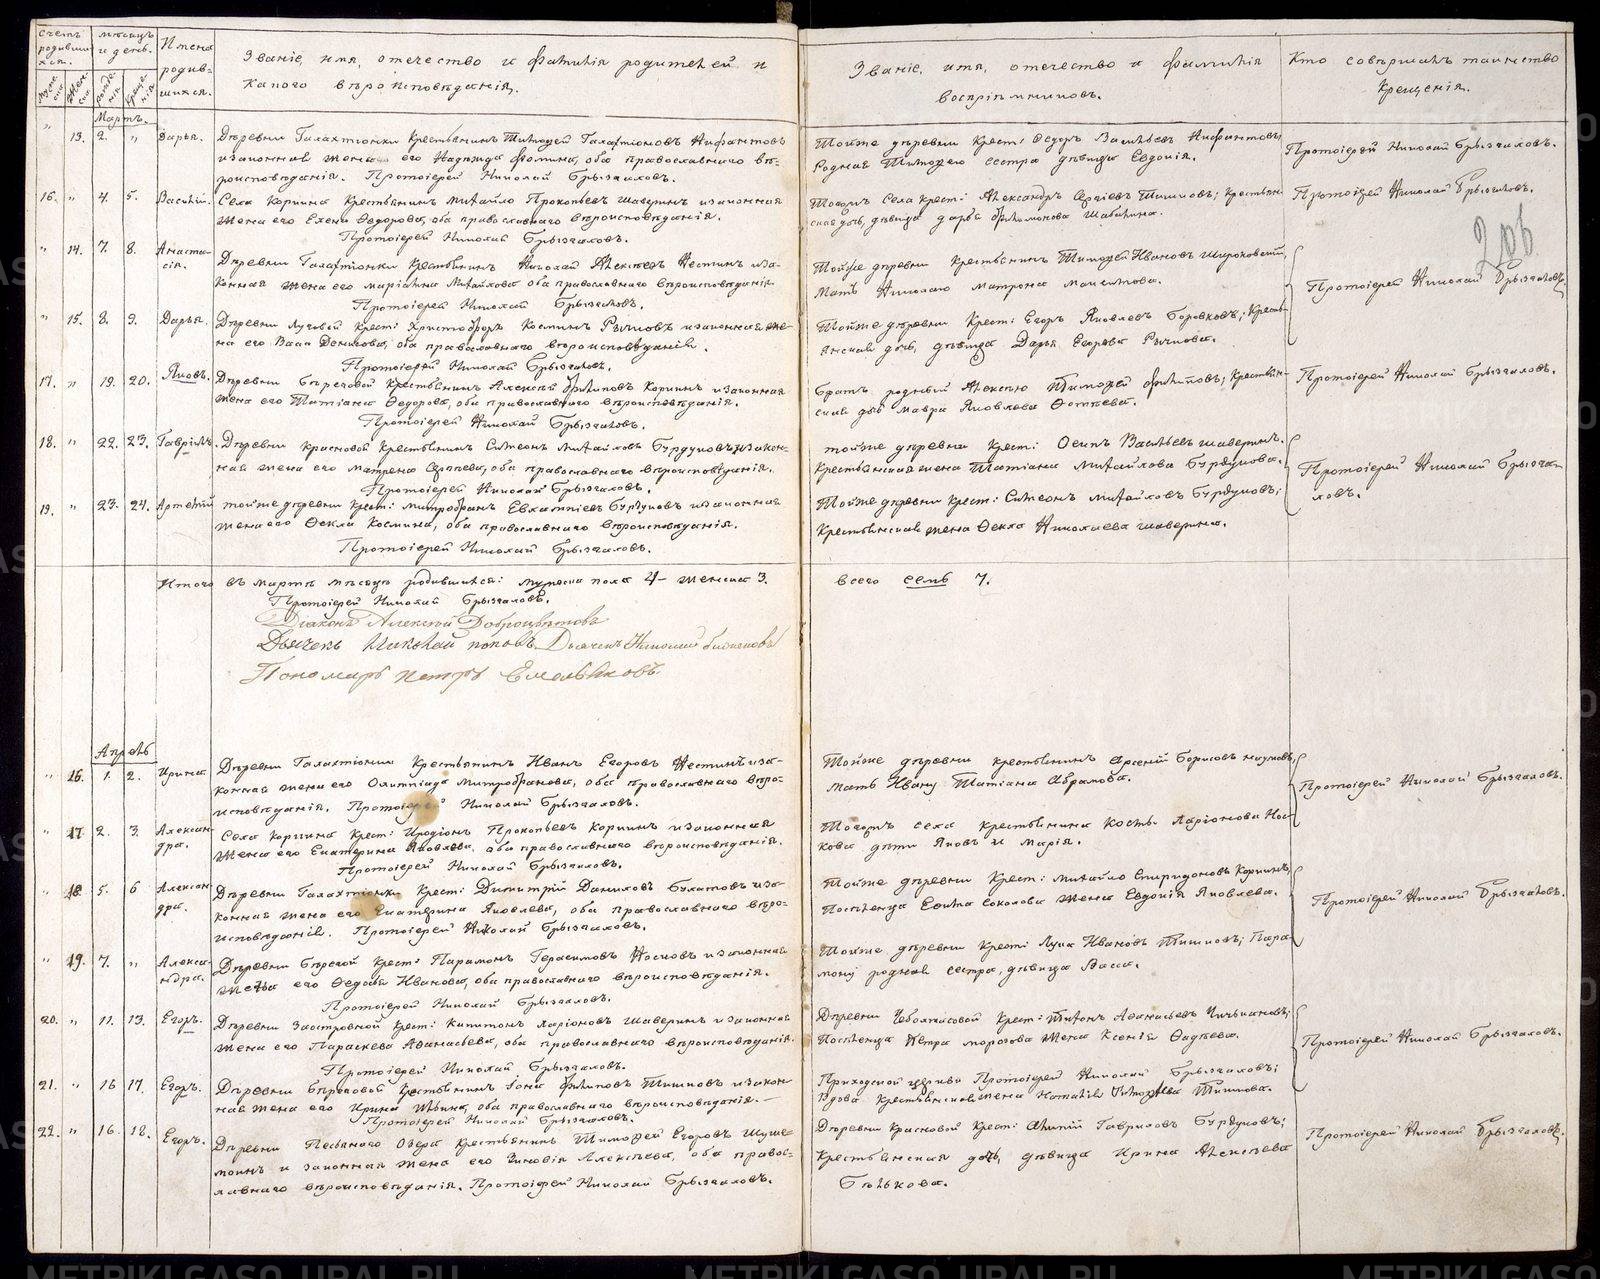 Счетъ родивших-ся.
мѣсяцъ и день.
Имена родив-шихся.
Званіе, имя, отечество и фамилія родителей и
какого вѣроисповѣданія.
Званіе, имя, отечество и фамилія
воспріемниковъ.
Кто совершалъ таинство
крещенія.
Мартъ.
13. 2. " Дарья.
Деревни Галахтіонки крестьянинъ Тимофей Галахтіоновъ Нифантовъ
и законная жена его Надежда Фомина, оба православнаго вѣ-
роисповѣданія. Протоіерей Николай Брызгаловъ.
Тойже деревни крест: Ѳедоръ Васильевъ Нифантовъ;
Родная Тимофею сестра дѣвица Евдокія.
Протоіерей Николай Брызгаловъ.
16. " 4. 5. Василій.
Села Коршна крестьянинъ Михайло Прокопьевъ Шаверинъ и законная
жена его Елена Ѳедорова, оба православнаго вѣроисповѣданія.
Протоіерей Николай Брызгаловъ.
Тогожъ села крест: Александръ Сергіевъ Тишковъ; крестьян-
ская дочь, дѣвица Дарья Филимонова
Протоіерей Николай Брызгаловъ.
" 14. 7. 8. Анаста-
сія.
Деревни Галахтіонки крестьянинъ Николай Алексѣевъ Нестинъ и за-
конная жена его Маріанна Михайлова оба православнаго вѣроисповѣданія
Протоіерей Николай Брызгаловъ.
Тойже деревни крестьянинъ Тимофей Ивановъ Широковскій,
Мать Николаю Матрона Максимова.
Протоіерей Николай Брызгаловъ.
" 15. 8. 9. Дарья.
Деревни Луговой крест: Христофоръ Косминъ Рычковъ и законная же-
на его Васса Денисова, оба православнаго вѣроисповѣданія.
Протоіерей Николай Брызгаловъ.
Тойже деревни крест: Егоръ Яковлевъ Боровковъ; кресть-
янская дочь, дѣвица Дарья Егорова Рычкова.
17. " 19. 20. Яковъ.
Деревни Береговой крестьянинъ Алексѣй Филиповъ Коршнъ и законная
жена его Татіана Ѳедорова, оба православнаго вѣроисповѣданія.
Протоіерей Николай Брызгаловъ.
Братъ родный Алексѣю Тимофей Филиповъ; крестьян-
ская дочь Мавра Яковлева
Протоіерей Николай Брызгаловъ.
18. " 22. 23. Гавріилъ.
Деревни Красновой крестьянинъ Симеонъ Михайловъ Бурдуковъ, и закон-
ная жена его Матрена Сергѣева, оба православнаго вѣроисповѣданія.
Протоіерей Николай Брызгаловъ.
тойже деревни крест: Осипъ Васильевъ Шаверинъ.
Крестьянская жена Татіана Михайлова Бурдукова.
Протоіерей Николай Брызга-
ловъ.
19. " 23. 24. Артемій
тойже деревни крест: Митрофанъ Евлампіевъ Бурдуковъ и законная
жена его Ѳекла Космина, оба православнаго вѣроисповѣданія.
Протоіерей Николай Брызгаловъ.
Тойже деревни крест: Симеонъ Михайловъ Бурдуковъ;
Крестьянская жена Ѳекла Николаева Шаверина.
Итого въ мартѣ мѣсяцѣ родившихся: мужеска пола 4 - женска 3.
всего семь 7.
Протоіерей Николай Брызгаловъ.
Діаконъ Алексѣй Доброцвѣтовъ
Дьячекъ Николай Поповъ Дьячекъ Николай
Пономарь Петръ Емельяновъ
Апрель
" 16. 1. 2. Ирина
Деревни Галахтіонки крестьянинъ Иванъ Егоровъ Нестинъ и за-
конная жена его Олимпіада Митрофанова, оба православнаго вѣро-
исповѣданія. Протоіерей Николай Брызгаловъ.
Тойже деревни крестьянинъ Арсеній Борисовъ Наумовъ,
Мать Ивану Татіана Абрамова.
Протоіерей Николай Брызгаловъ.
" 17. 2. 3. Алексан-
дра.
Села Коршна крест: Иродіонъ Прокопьевъ Коршнъ и законная
жена его Екатерина Яковлева, оба православнаго вѣроисповѣданія.
Протоіерей Николай Брызгаловъ.
Тогожъ села крестьянина Косьмы Ларіонова Нос-
кова дети Яковъ и Марія.
" 18. 5. 6 Алексан-
дра.
Деревни Галахтіонки крест: Димитрій Даниловъ Булатовъ и за-
конная жена его Екатерина Яковлева, оба православнаго вѣро-
исповѣданія. Протоіерей Николай Брызгаловъ.
Тойже деревни крест: Михайло Спиридоновъ
Поселенца Ефима Соколова жена Евдокія Яковлева.
Протоіерей Николай Брызгаловъ.
" 19. 7. " Алекса-
ндра.
Деревни Береговой крест: Парамонъ Герасимовъ Носковъ и законная
жена его Ѳедосья Иванова, оба православнаго вѣроисповѣданія.
Протоіерей Николай Брызгаловъ.
Тойже деревни крест: Лука Ивановъ Тишковъ; Пара-
мону родная сестра, дѣвица Васса.
20. " 11. 13. Егоръ.
Деревни Заостровной крест: Капитонъ Ларіоновъ Шаверинъ и законная
жена его Параскева Аѳанасьева, оба православнаго вѣроисповѣданія.
Протоіерей Николай Брызгаловъ.
Деревни крест: Титонъ Аѳанасьевъ
Поселенца Петра Морозова жена Ксенія Ѳадѣева.
Протоіерей Николай Брызгаловъ.
21. " 16 17. Егоръ.
Деревни Береговой крестьянинъ Іона Филиповъ Тишковъ и закон-
ная жена его Ирина Ильина, оба православнаго вѣроисповѣданія.
Протоіерей Николай Брызгаловъ.
Приходской церкви Протоіерей Николай Брызгаловъ;
Вдова крестьянская жена Наталія Тимофѣева Тишкова.
22. " 16. 18. Егоръ.
Деревни Песьянаго Озера крестьянинъ Тимофей Егоровъ Шуше-
и законная жена его Зиновія Алексѣева, оба правос-
лавнаго вѣроисповѣданія. Протоіерей Николай Брызгаловъ.
Деревни Красновой крест: Гавриловъ Бурдуковъ;
крестьянская дочь, дѣвица Ирина Алексѣева
Протоіерей Николай Брызгаловъ.
METRIKI.GASO-URAL.RU